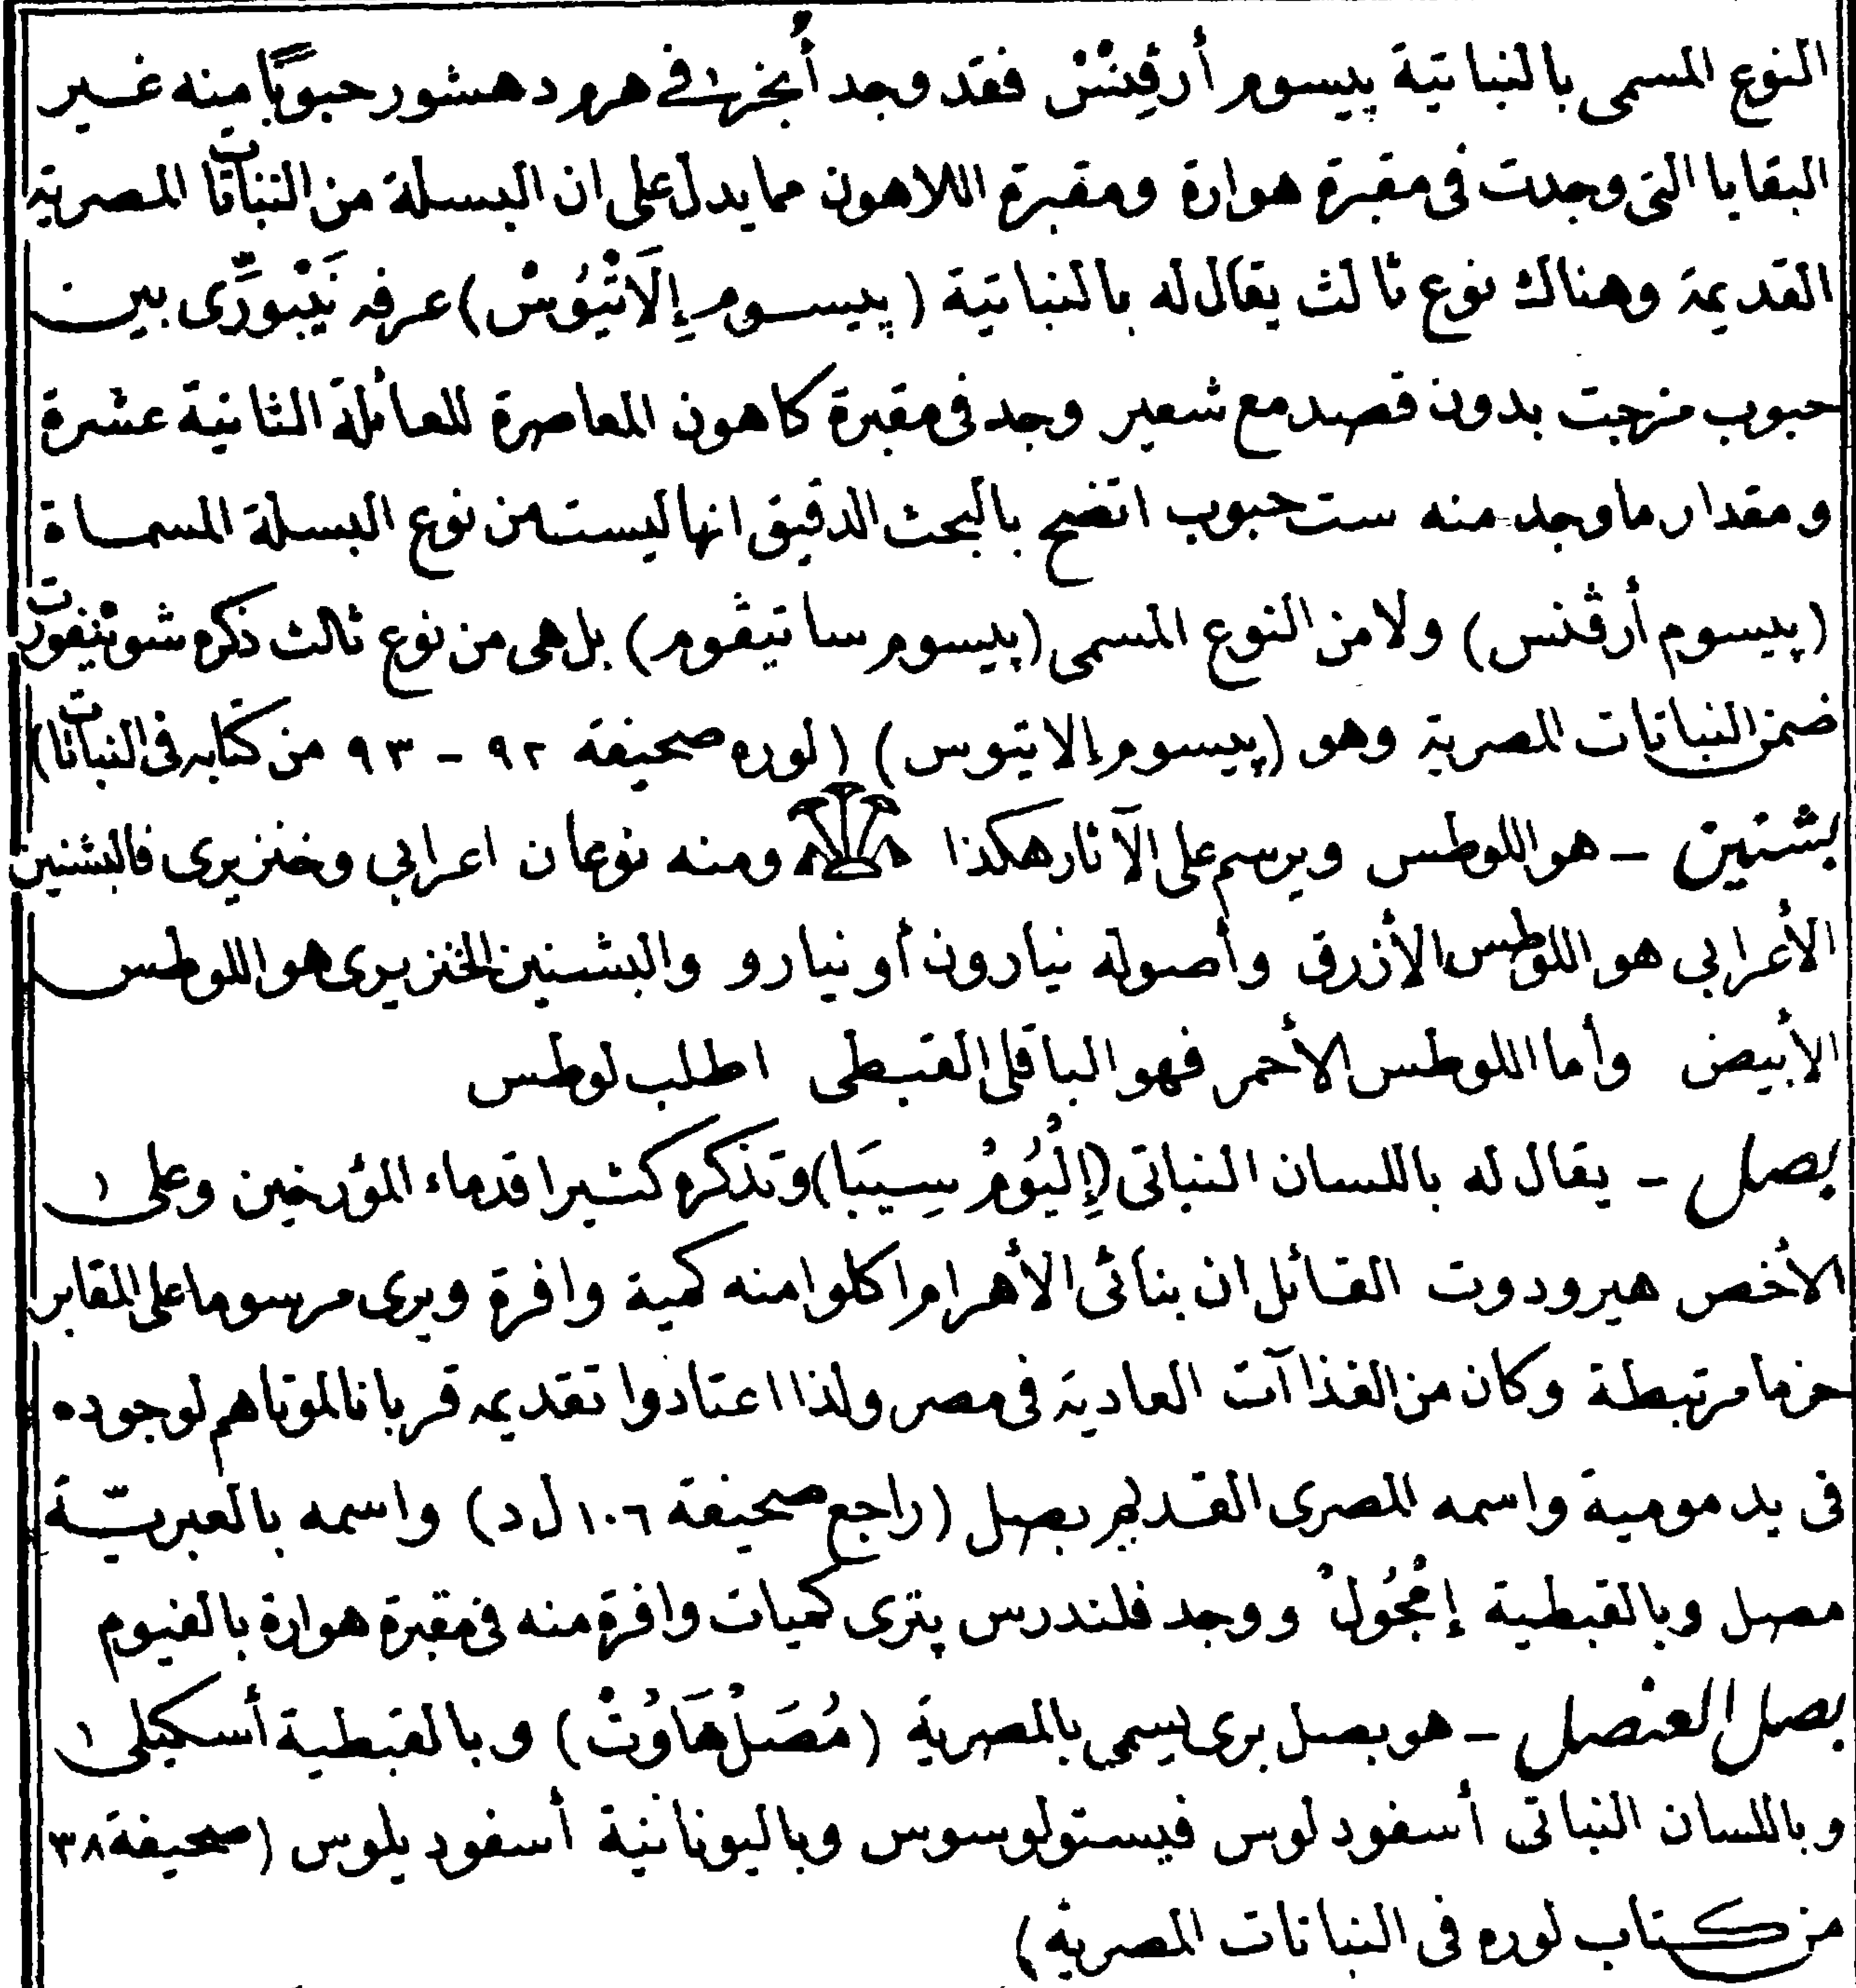 النوع المسمى بالنباتية پيسوم أرڤِنْسْ فقد وجد أُنجرفى هرم دهشور حبوبًا منه غير
البقايا التى وجدت فى مقبرة هوارة ومقبرة اللاهون مما يدل على ان البسلة من النباتات المصرية
القديمة وهناك نوع ثالث يقال له بالنباتية (پيسوم إِلَاتْيُوسْ) عرفه نَيْبُورِّى بين
حبوب مزجت بدون قصد مع شعير وجد فى مقبرة كاهون المعاصرة للعائلة الثانية عشرة
ومقدار ما وجد منه ست حبوب اتضح بالبحث الدقيق انها ليست من نوع البسلة المسماة
(پيسوم أرڤنس) ولا من النوع المسمى (پيسوم ساتيڤوم) بل هى من نوع ثالث ذكره شوينفورت
ضمن النباتات المصرية وهو (پيسوم إلاتيوس) (لوره صحيفة ٩٢ - ٩٣ من كتابه فى النباتات)
بشنين - هو اللوطس ويرسم على الآثار هكذا ومنه نوعان اعرابي وخنزيرى فالبشنين
الأعرابي هو اللوطس الأزرق وأصوله نيارون أو نيارو والبشنين الخنزيرى هو اللوطس
الأبيض وأما اللوطس الأحمر فهو الباقلى القبطى اطلب لوطس
بصل - يقال له باللسان النباتى (إِلْيُومْ سِيبَا) وتذكره كثيرا قدماء المؤرخين وعلى
الأخص هيرودوت القائل ان بنائى الأهرام اكلوا منه كمية وافرة ويرى مرسوما على المقابر
حزما مرتبطة وكان من الغذاآت العادية فى مصر ولذا اعتادوا تقديمه قربانا لموتاهم لوجوده
فى يد مومية واسمه المصرى القديم بصل (راجع صحيفة ١٠٦ ل د) واسمه بالعبرية
مصل وبالقبطية إمْجُولْ ووجد فلندرس پترى كميات وافرة منه فى مقبرة هوارة بالفيوم
بصل العنصل - هو بصل برى يسمى بالمصرية (مُصَلْ هَاوُتْ) وبالقبطية أسكيلى
وباللسان النباتى أسفودلوس فيستولوسوس وباليونانية أسفوديلوس (صحيفة ٣٨
من كتاب لوره فى النباتات المصرية)